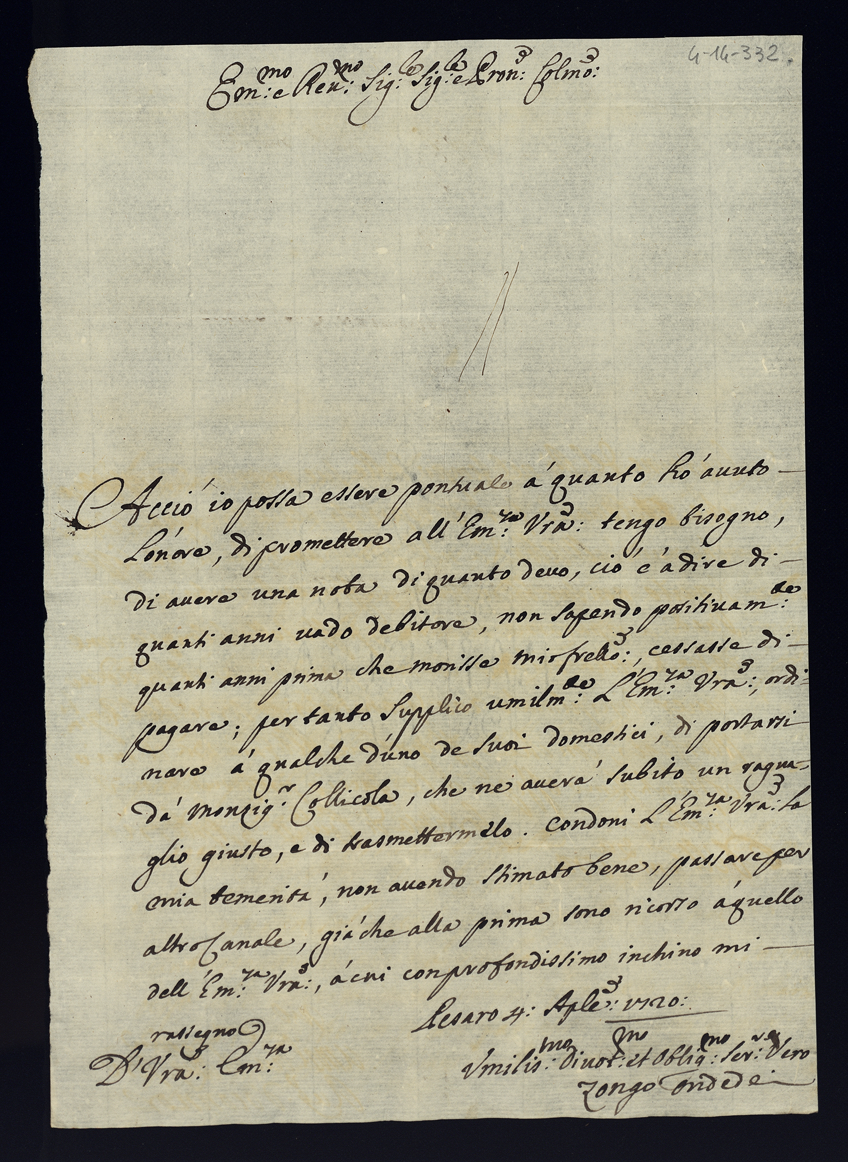 4-14-332.
Em:mo e Reu:mo Sig:e Sig:e e Pron:e Colmo:
Acció io possa essere pontuale á quanto hó auuto
L'onore, di promettere all'Em:za Vrã: tengo bisogno,
di auere una nota di quanto deuo, ció é á dire di
quanti anni uado debitore, non sapendo positiuam:te
quanti anni prima che morisse mio frello:, cessasse di
pagare; per tanto supplico umilm:te L'Em:za Vrã:, ordi
nare á qualche d'úno de suoi domestici, di portarsi
dá Monsig:r Collicola, che ne auerá subito un ragua-
glio giusto, e di trasmettermelo. Condoni L'Em:za Vrã: la
mia temeritá, non auendo stimato bene, passare per
altro Canale, giá che alla prima sono ricorso á quello
dell'Em:za Vrã:, á cui con profondissimo inchino mi
rassegno
Pesaro 4: Aple: 1720:
D'Vrã: Em:za
Vmilis:mo Diuot:mo et Obliq:mo Ser:re Vero
Zongo Ondedei